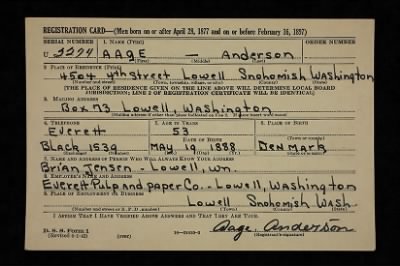 REGISTRATION CARD—(Men born on or after April 28, 1877 and on or before February 16, 1897)
SERIAL NUMBER 1. NAME (Print) ORDER NUMBER
U 3274 AAGE — Anderson
(First) (Middle) (Last)
2. PLACE OF RESIDENCE (Print)
4504 4th Street Lowell Snohomish Washington
(Number and street) (Town, township, village, or city) (County) (State)
[THE PLACE OF RESIDENCE GIVEN ON THE LINE ABOVE WILL DETERMINE LOCAL BOARD
JURISDICTION; LINE 2 OF REGISTRATION CERTIFICATE WILL BE IDENTICAL]
3. MAILING ADDRESS
Box 73 Lowell, Washington
[Mailing address if other than place indicated on line 2. If same insert word same]
4. TELEPHONE 5. AGE IN YEARS 6. PLACE OF BIRTH
Everett 53
DATE OF BIRTH
Black 1539 May 19 1888 Denmark
(Exchange) (Number) (Mo.) (Day) (Yr.) (State or country)
7. NAME AND ADDRESS OF PERSON WHO WILL ALWAYS KNOW YOUR ADDRESS
Brian Jensen - Lowell, Wn.
8. EMPLOYER'S NAME AND ADDRESS
Everett Pulp and paper Co. - Lowell, Washington
9. PLACE OF EMPLOYMENT OR BUSINESS
Lowell Snohomish Wash.
(Number and street or R. F. D. number) (Town) (County) (State)
I AFFIRM THAT I HAVE VERIFIED ABOVE ANSWERS AND THAT THEY ARE TRUE.
D. S. S. Form 1
(Revised 4-1-42) (over) Aage. Anderson
(Registrant's signature)